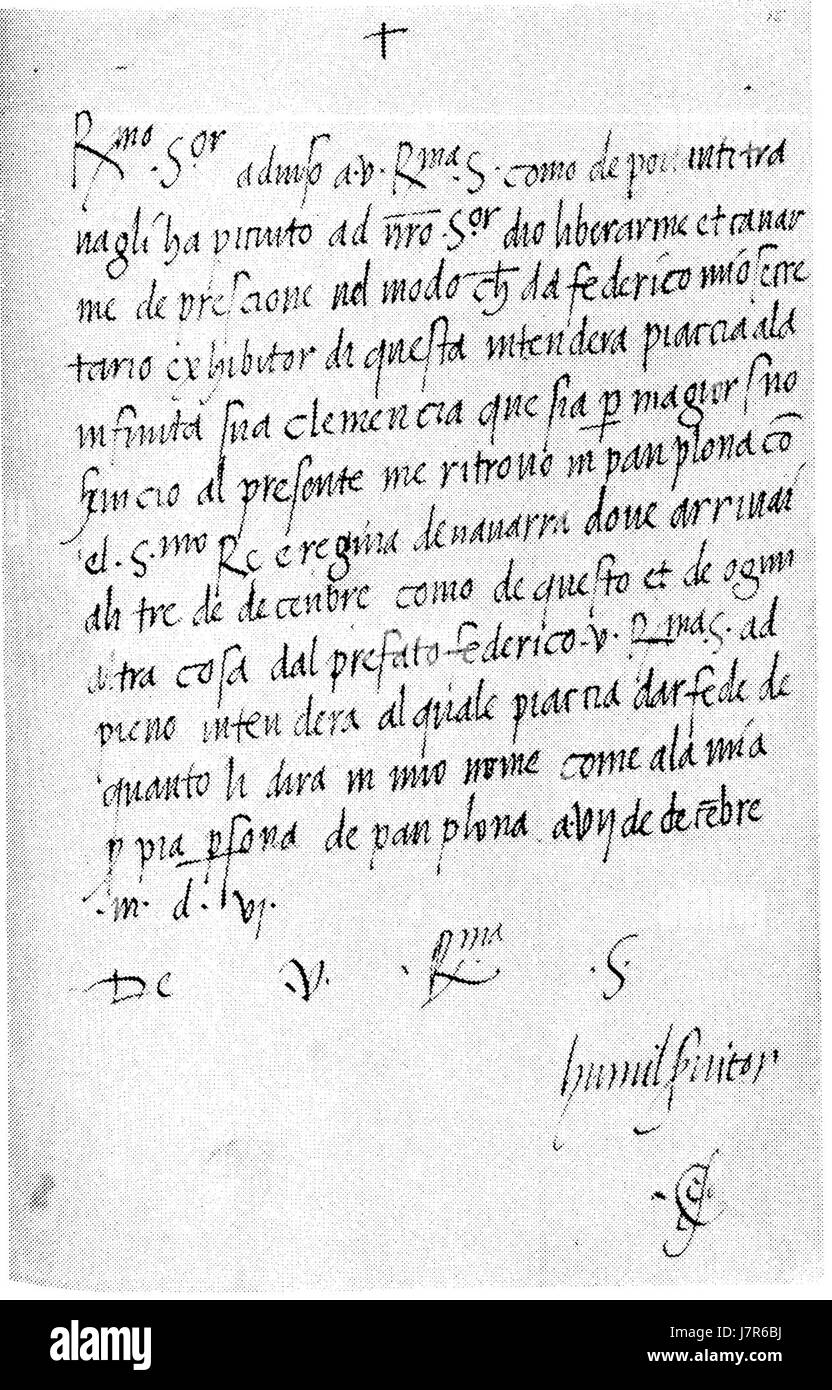 +
Rmo. Sor aduiso a.v. Rma. S. como de poi tra
uagli ha piciuto ad nr̅o. Sor dio liberarme et cauar
me de prescione nel modo ch̅ da federico mio secre
tario exhibitor di questa intendera piaccia ala
infinita sua clemencia que sia p̱ magior suo
seruicio al presente me ritrouo in panplona co̅
el. S.mo Re e regina de nauarra doue arriuai
ali tre de decenbre como de questo et de ogni
altra cosa dal prefato federico .v. Rma S. ad
pieno intendera al quale piaccia dar fede de
quanto li dira in mio nome come ala mia
p pia p̱sona de panplona a.vij de dece̅bre
.m. d. vi.
De .V. Rma .S.
humil seruitor
alamy
Image ID: J7R6BJ
www.alamy.com